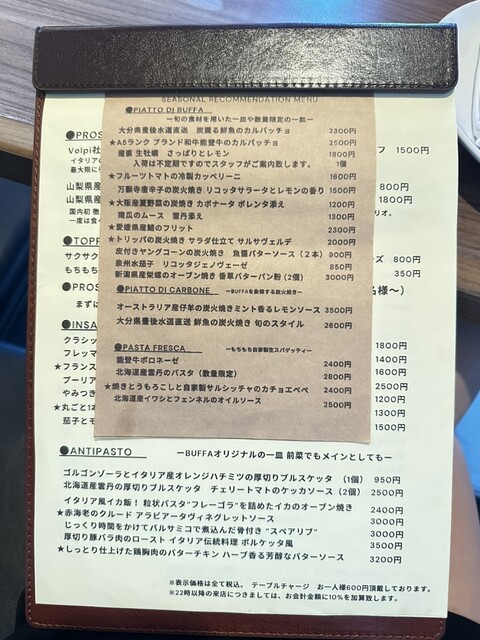 SEASONAL RECOMMENDATION MENU
●PIATTO DI BUFFA
ー旬の食材を用いた一皿や数量限定の一皿ー
大分県豊後水道直送 炭薫る鮮魚のカルパッチョ 2300円
★A5ランク ブランド和牛能登牛のカルパッチョ 2500円
産直 生牡蠣 さっぱりとレモン 1800円
入荷は不定期ですのでスタッフがご案内致します。 1個
★フルーツトマトの冷製カッペリーニ 1600円
万願寺唐辛子の炭火焼き リコッタサラータとレモンの香り 1500円
★大阪産夏野菜の炭焼き カポナータ ポレンタ添え 1200円
南瓜のムース 雲丹添え 1300円
★愛媛県産鱧のフリット 2300円
★トリッパの炭火焼き サラダ仕立て サルサヴェルデ 2000円
皮付きヤングコーンの炭火焼き 魚醤バターソース(2本) 900円
泉州水茄子 リコッタジェノヴェーゼ 850円
新潟県産栄螺のオーブン焼き 香草バターパン粉(2個) 3000円
●PIATTO DI CARBONE ーBUFFAを象徴する炭火焼きー
オーストラリア産仔羊の炭火焼きミント香るレモンソース 3500円
大分県豊後水道直送 鮮魚の炭火焼き 旬のスタイル 2600円
●PASTA FRESCA ーもちもち自家製生スパゲッティー
能登牛ボロネーゼ 2400円
北海道産雲丹のパスタ(数量限定) 2800円
★焼きとうもろこしと自家製サルシッチャのカチョエペペ 2400円
北海道産イワシとフェンネルのオイルソース 2500円
●PROS
Volpi社 フ 1500円
イタリアの
最大限に
山梨県産 800円
山梨県産 1800円
国内初 リオ。
一度は食べ
●TOPP
サクサク ズ 800円
もちもち 350円
●PROS 名様〜)
まずは
●INSA
クラシッ 1800円
フレッマ 1400円
★フランス 1600円
ブーリア 2500円
やみつき 1200円
★丸ごと12 1300円
茄子とモ 1500円
●ANTIPASTO ーBUFFAオリジナルの一皿 前菜でもメインとしてもー
ゴルゴンゾーラとイタリア産オレンジハチミツの厚切りブルスケッタ (1個) 950円
北海道産雲丹の厚切りブルスケッタ チェリートマトのケッカソース(2個) 2500円
イタリア風イカ飯! 粒状パスタ“フレーゴラ”を詰めたイカのオーブン焼き 2400円
★赤海老のクルード アラビアータヴィネグレットソース 3000円
じっくり時間をかけてバルサミコで煮込んだ骨付き “スペアリブ” 3000円
厚切り豚バラ肉のロースト イタリア伝統料理 ポルケッタ風 3500円
★しっとり仕上げた鶏胸肉のバターチキン ハーブ香る芳醇なバターソース 3200円
※表示価格は全て税込。 テーブルチャージ お一人様600円頂戴しております。
※22時以降の来店につきましては、お会計金額に10%を加算致します。